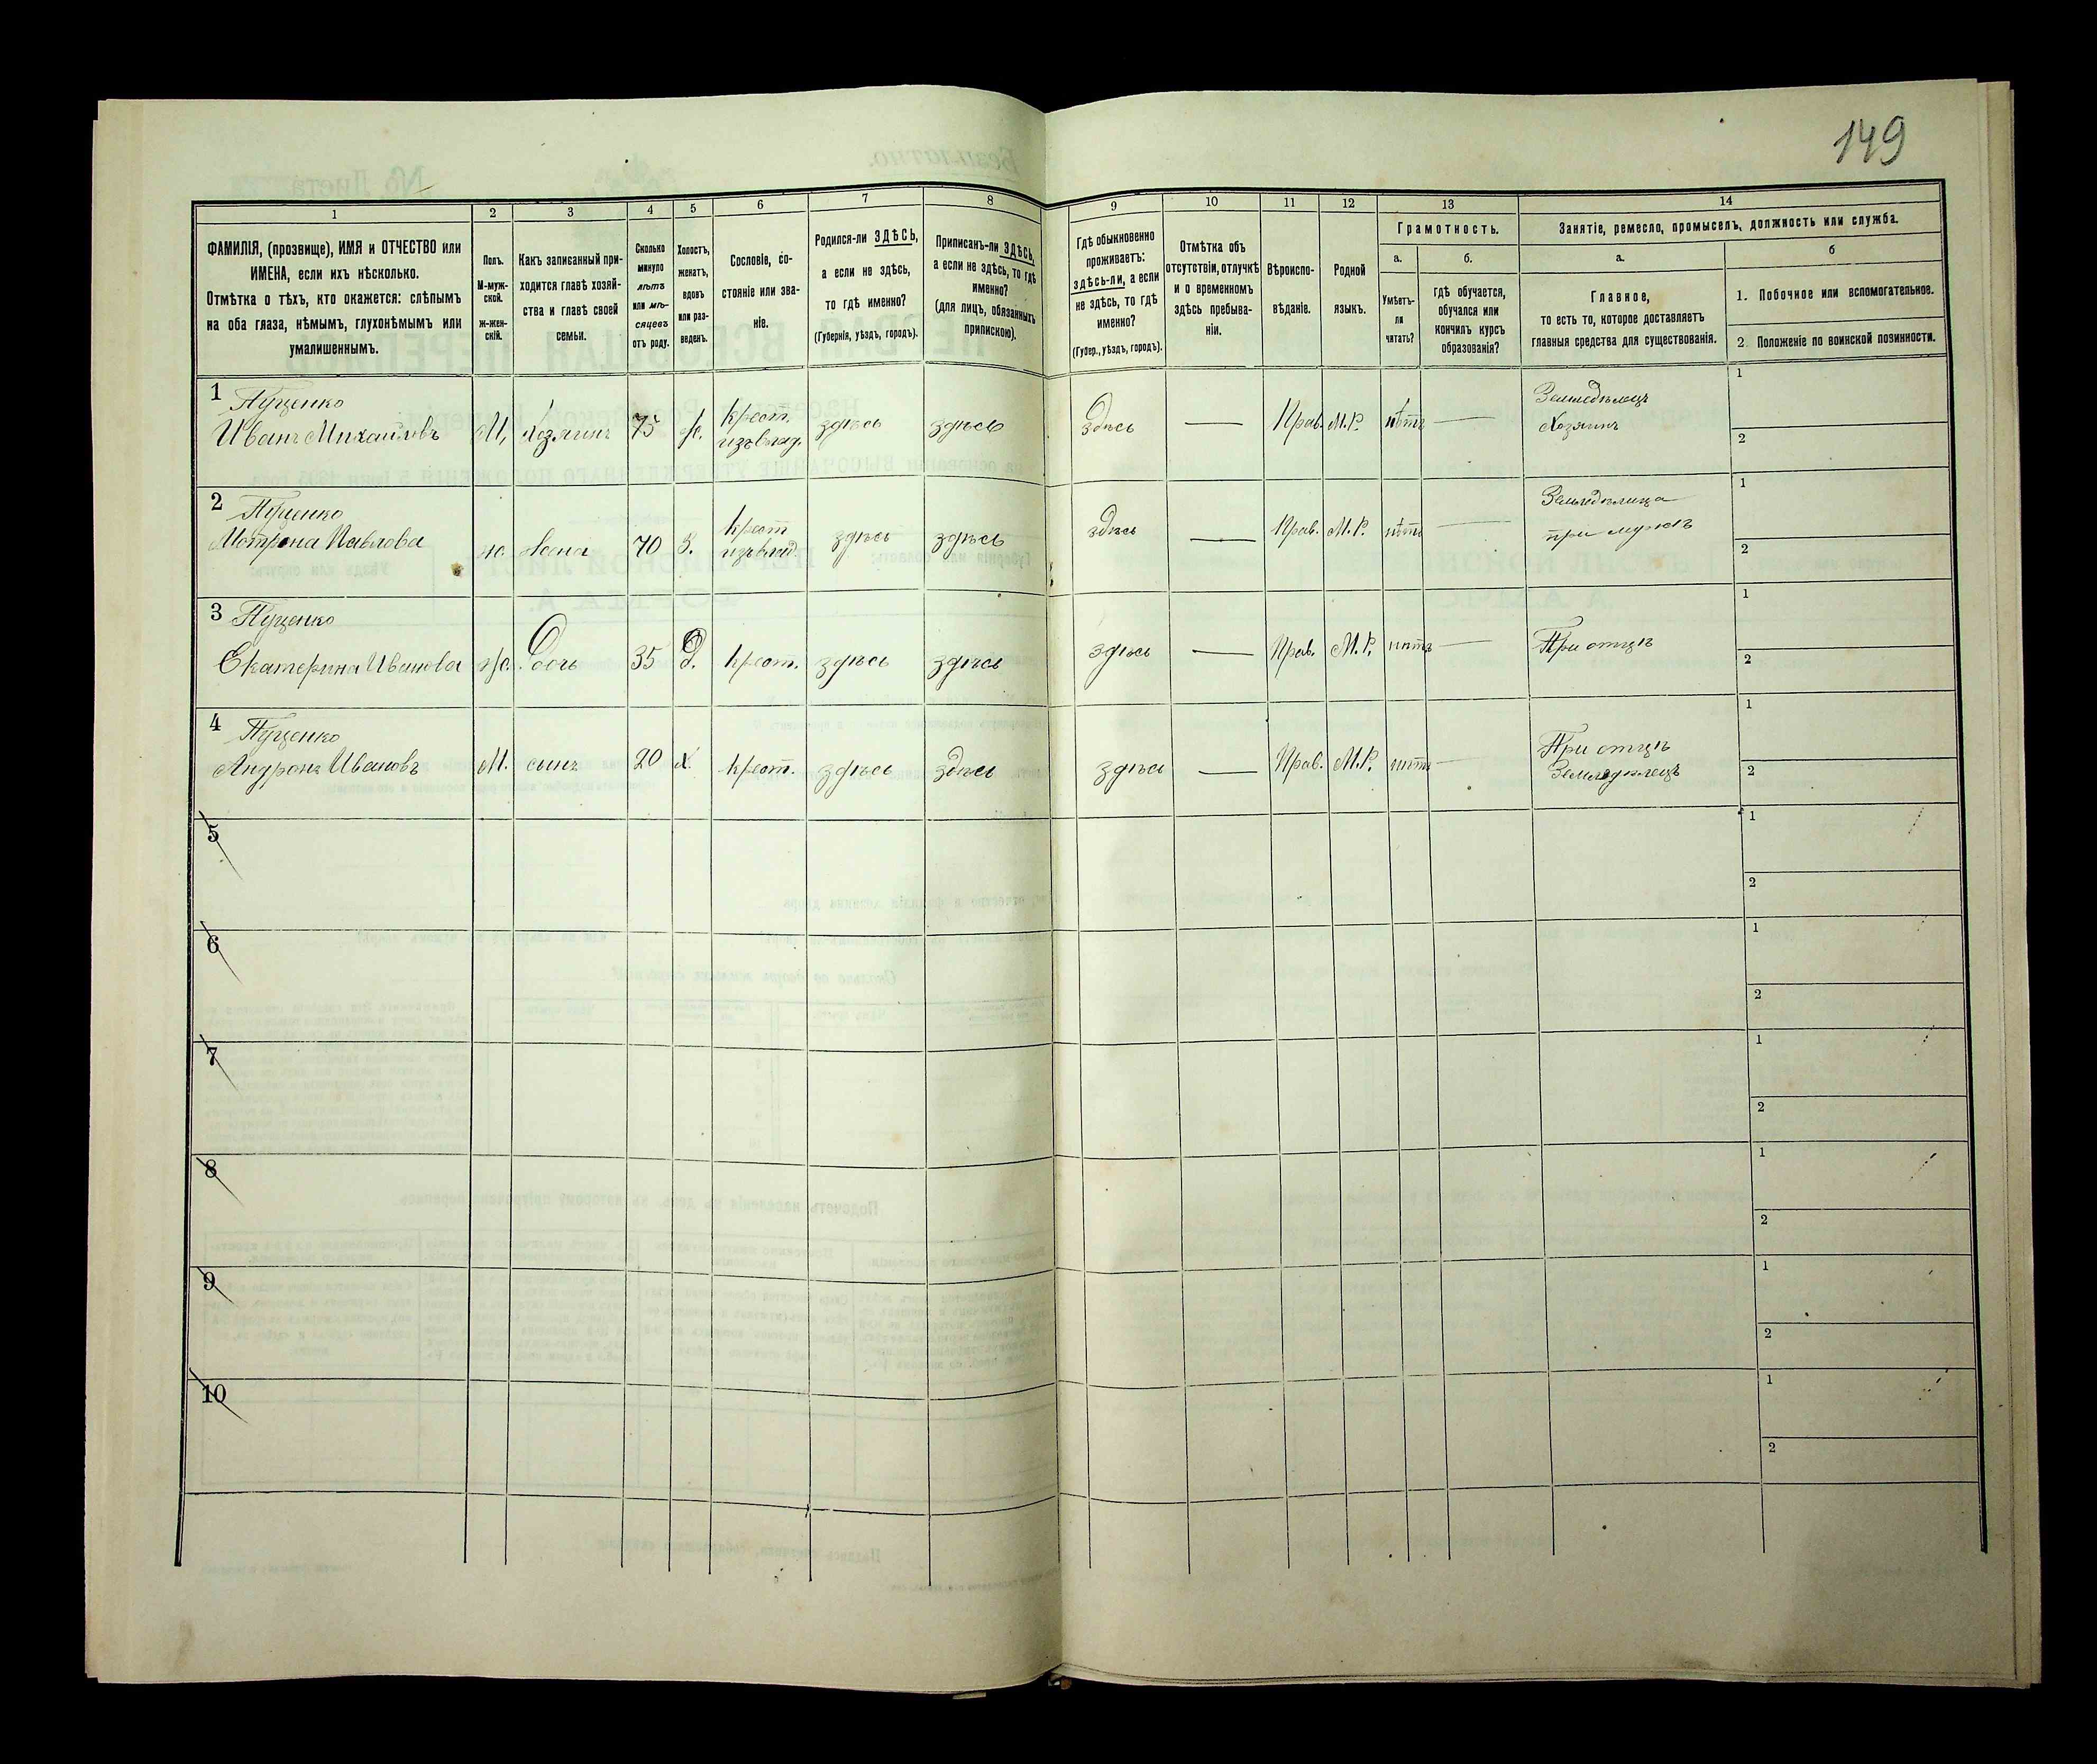 149
1 2 3 4 5 6 7 8 9 10 11 12 13 14
ФАМИЛІЯ, (прозвище), ИМЯ и ОТЧЕСТВО или
ИМЕНА, если ихъ нѣсколько.
Отмѣтка о тѣхъ, кто окажется: слѣпымъ
на оба глаза, нѣмымъ, глухонѣмымъ или
умалишеннымъ.
Полъ.
М-муж-
ской.
ж-жен-
скій.
Какъ записанный при-
ходится главѣ хозяй-
ства и главѣ своей
семьи.
Сколько
минуло
лѣтъ
или мѣ-
сяцевъ
отъ роду.
Холостъ,
женатъ,
вдовъ
или раз-
веденъ.
Сословіе, со-
стояніе или зва-
ніе.
Родился-ли ЗДѢСЬ,
а если не здѣсь,
то гдѣ именно?
(Губернія, уѣздъ, городъ).
Приписанъ-ли ЗДѢСЬ,
а если не здѣсь, то гдѣ
именно?
(для лицъ, обязанныхъ
припискою).
Гдѣ обыкновенно
проживаетъ:
здѣсь-ли, а если
не здѣсь, то гдѣ
именно?
(Губер., уѣздъ, городъ).
Отмѣтка объ
отсутствіи, отлучкѣ
и о временномъ
здѣсь пребыва-
ніи.
Вѣроиспо-
вѣданіе.
Родной
языкъ.
Грамотность.
а.
Умѣетъ-
ли
читать?
б.
гдѣ обучается,
обучался или
кончилъ курсъ
образованія?
Занятіе, ремесло, промыселъ, должность или служба.
а.
Главное,
то есть то, которое доставляетъ
главныя средства для существованія.
б
1. Побочное или вспомогательное.
2 Положеніе по воинской повинности.
1 Пуценко
Иванъ Михаиловъ М. хозяинъ 75 ж. крест. изъ влад. здѣсь здѣсь здѣсь — Прав. М.Р. нѣтъ — Земледѣлецъ
Хозяинъ
1
2
2 Пуценко
Мотрона Павлова ж. жена 70 З. крест. изъ влад. здѣсь здѣсь здѣсь — Прав. М.Р. нѣтъ — Земледѣлица
при мужѣ
1
2
3 Пуценко
Екатерина Иванова ж. дочь 35 Д. крест. здѣсь здѣсь здѣсь — Прав. М.Р. нѣтъ — При отцѣ
1
2
4 Пуценко
Андронъ Ивановъ М. сынъ 20 х. крест. здѣсь здѣсь здѣсь — Прав. М.Р. нѣтъ — При отцѣ
Земледѣлецъ
1
2
5
1
2
6
1
2
7
1
2
8
1
2
9
1
2
10
1
2